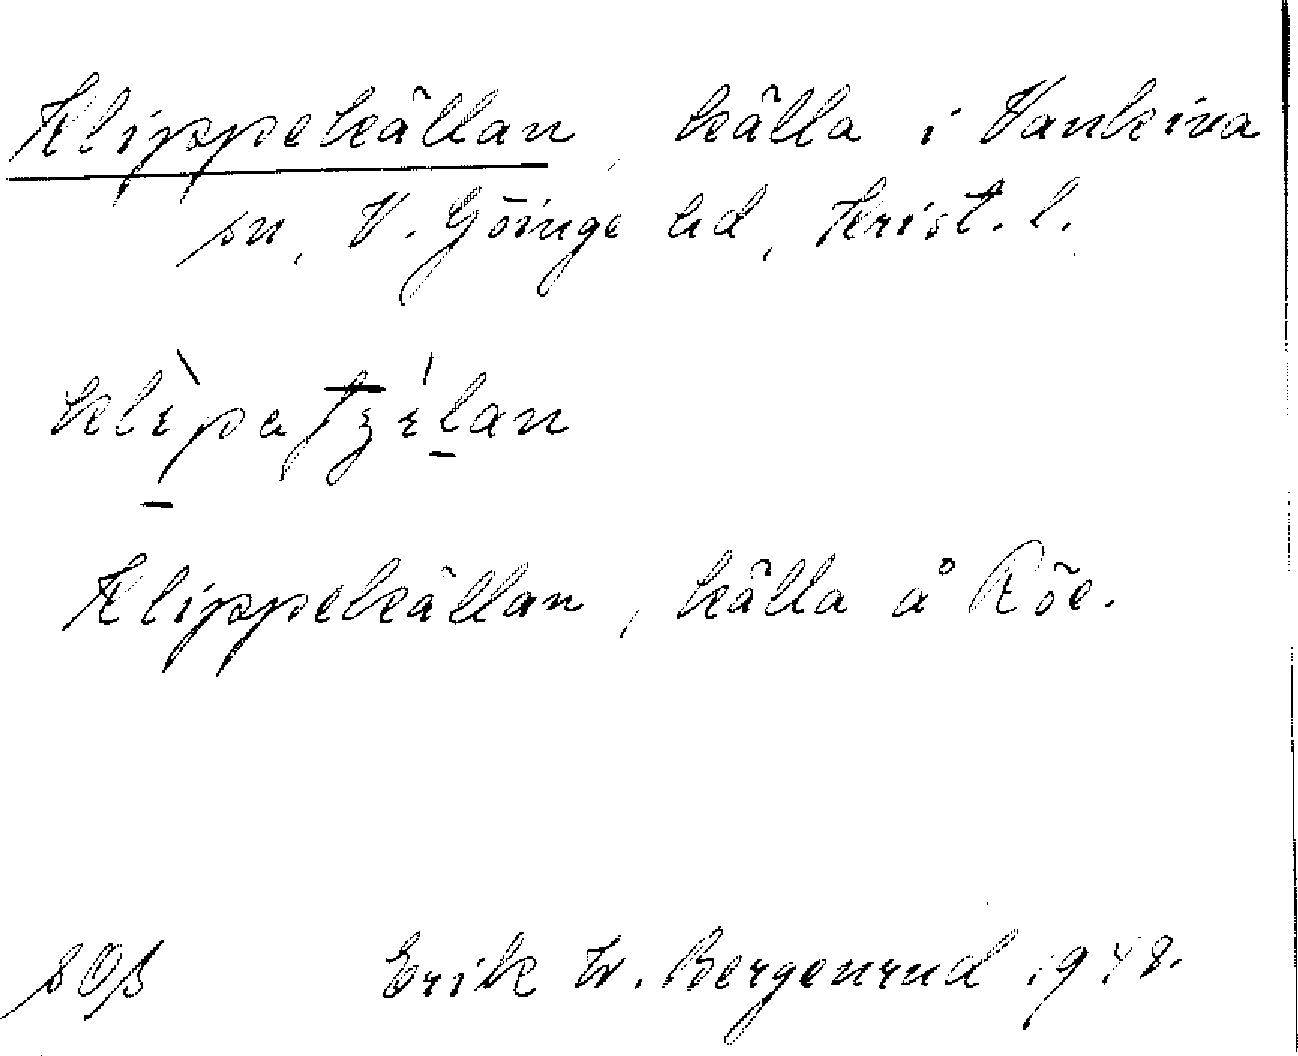 Klippekällan, källa i Vankiva
sn, V. Göinge hd, Krist. l.
Klippekällan, källa å Röe.
Erik W. Bergenrud 1948.